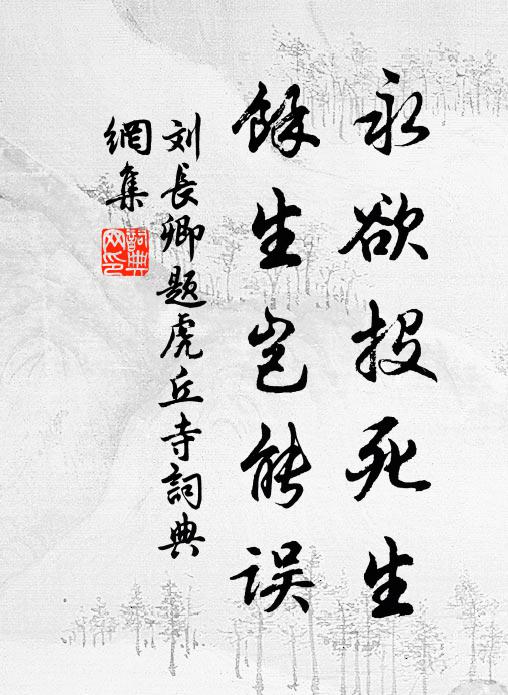 永欲投死生
餘生岂能误
刘長卿题虎丘寺詞典
網集
詞典网印